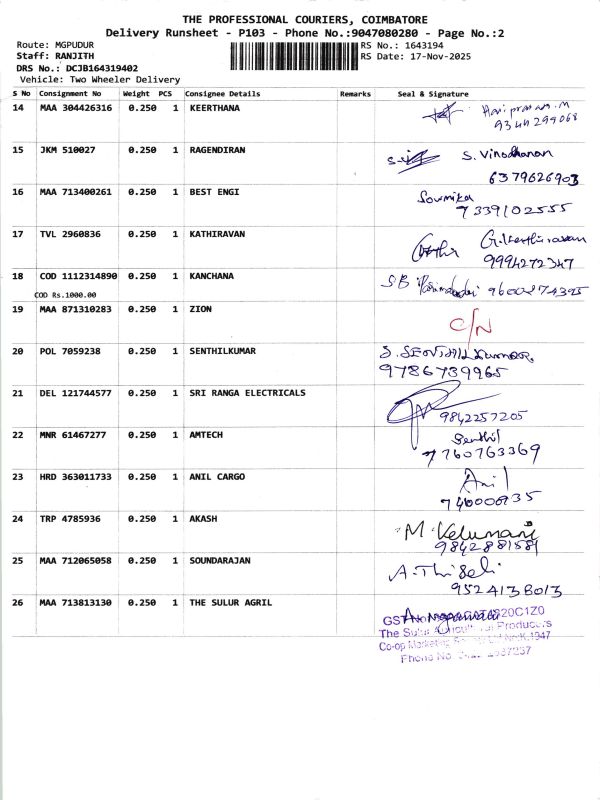 THE PROFESSIONAL COURIERS, COIMBATORE
Delivery Runsheet - P103 - Phone No.:9047080280 - Page No.:2
Route: MGPUDUR RS No.: 1643194
Staff: RANJITH RS Date: 17-Nov-2025
DRS No.: DCJB164319402
Vehicle: Two Wheeler Delivery
S No Consignment No Weight PCS Consignee Details Remarks Seal & Signature
14 MAA 304426316 0.250 1 KEERTHANA
9344299068
15 JKM 510027 0.250 1 RAGENDIRAN S. Vinodhanan
6379626903
16 MAA 713400261 0.250 1 BEST ENGI Sowmika
7339102555
17 TVL 2960836 0.250 1 KATHIRAVAN
9994272347
18 COD 1112314890 0.250 1 KANCHANA SB
COD Rs.1000.00
19 MAA 871310283 0.250 1 ZION C/N
20 POL 7059238 0.250 1 SENTHILKUMAR
9786739965
21 DEL 121744577 0.250 1 SRI RANGA ELECTRICALS
9842257205
22 MNR 61467277 0.250 1 AMTECH Senthil
7760763369
23 HRD 363011733 0.250 1 ANIL CARGO Anil
24 TRP 4785936 0.250 1 AKASH
25 MAA 712065058 0.250 1 SOUNDARAJAN
26 MAA 713813130 0.250 1 THE SULUR AGRIL
The Sulur Producers
Co-op Marketing
Phone No